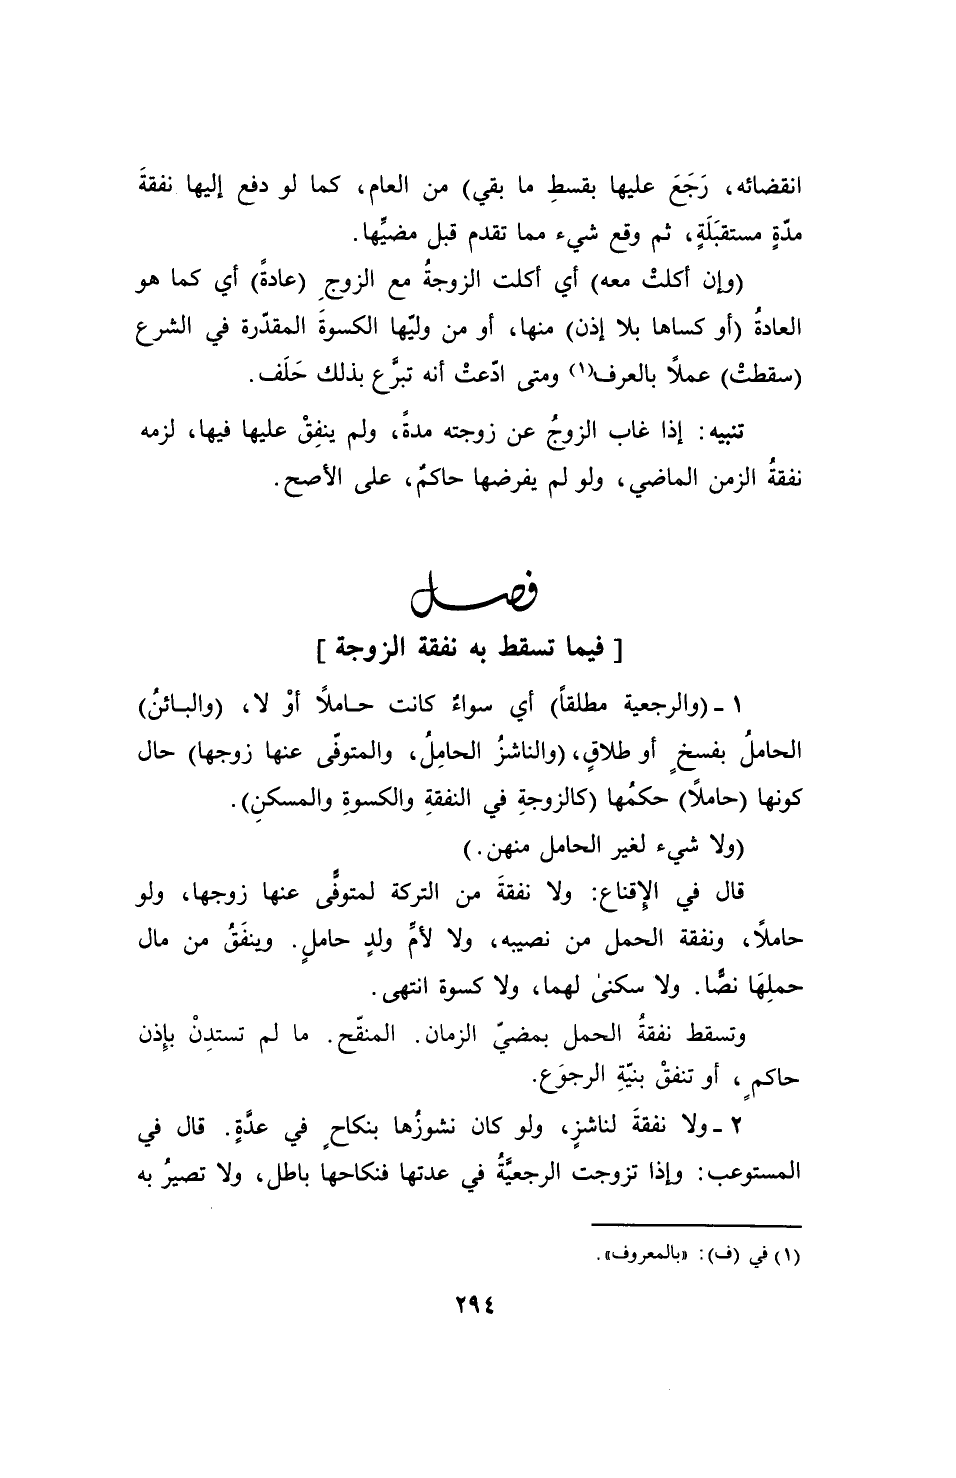 انقضائه، رَجَعَ عليها بقسطِ ما بقي) من العام، كما لو دفع إليها نفقةَ
مدّةٍ مستقبَلَةٍ، ثم وقع شيء مما تقدم قبل مضيِّها.
(وإن أكلتْ معه) أي أكلت الزوجةُ مع الزوجِ (عادةً) أي كما هو
العادةُ (أو كساها بلا إذن) منها، أو من وليّها الكسوةَ المقدّرة في الشرع
(سقطتْ) عملًا بالعرف(١) ومتى ادّعتْ أنه تبرَّع بذلك حَلَف.
تنبيه: إذا غاب الزوجُ عن زوجته مدةً، ولم ينفِقْ عليها فيها، لزمه
نفقةُ الزمن الماضي، ولو لم يفرضها حاكمٌ، على الأصح.
فصل
[ فيما تسقط به نفقة الزوجة ]
١ ـ (والرجعية مطلقاً) أي سواءٌ كانت حاملًا أوْ لا، (والبائنُ)
الحاملُ بفسخٍ أو طلاقٍ، (والناشزُ الحامِلُ، والمتوفّى عنها زوجها) حال
كونها (حاملًا) حكمُها (كالزوجةِ في النفقةِ والكسوةِ والمسكنِ).
(ولا شيء لغير الحامل منهن.)
قال في الإِقناع: ولا نفقةَ من التركة لمتوفًّى عنها زوجها، ولو
حاملًا، ونفقة الحمل من نصيبه، ولا لأمِّ ولدٍ حاملٍ. وينفَقُ من مال
حملِهَا نصًّا. ولا سكنىٰ لهما، ولا كسوة انتهى.
وتسقط نفقةُ الحمل بمضيّ الزمان. المنقّح. ما لم تستدِنْ بإِذن
حاكمٍ، أو تنفقْ بنيّةِ الرجوَع.
٢ ـ ولا نفقةَ لناشزٍ، ولو كان نشوزُها بنكاحٍ في عدَّةٍ. قال في
المستوعب: وإذا تزوجت الرجعيَّةُ في عدتها فنكاحها باطل، ولا تصيرُ به
(١) في (ف): «بالمعروف».
٢٩٤